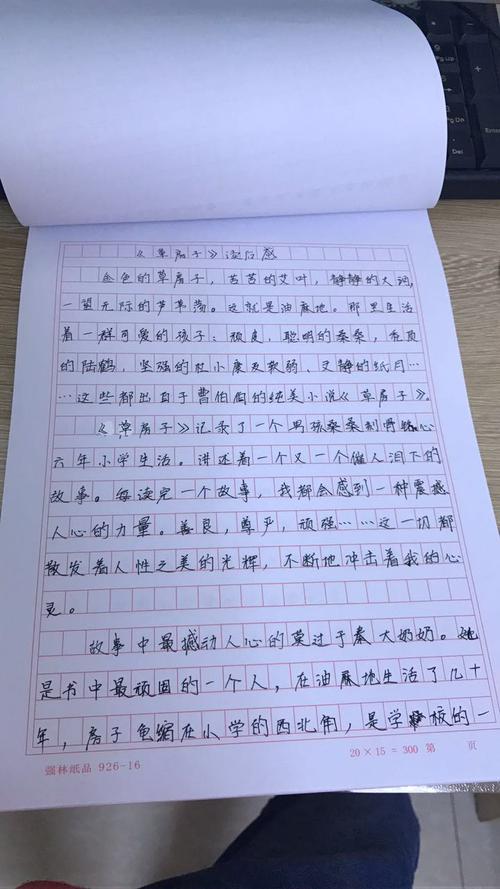 《草房子》读后感
金色的草房子，苦苦的艾叶，静静的大河，
一望无际的芦苇荡。这就是油麻地。那里生活
着一群可爱的孩子：顽皮，聪明的桑桑，秃顶
的陆鹤，坚强的杜小康及软弱、文静的纸月…
…这些都出自于曹伯闻的纯美小说《草房子》。
《草房子》记录了一个男孩桑桑刻骨铭心
六年小学生活。讲述着一个又一个催人泪下的
故事。每读完一个故事，我都会感到一种震撼
人心的力量。善良，尊严，顽强……这一切都
散发着人性之美的光辉，不断地冲击着我的心
灵。
故事中最撼动人心的莫过于秦大奶奶。她
是书中最顽固的一个人，在油麻地生活了几十
年，房子龟缩在小学的西北角，是学板的一
强林纸品 926-16
20×15=300 第 页
Del
Ins